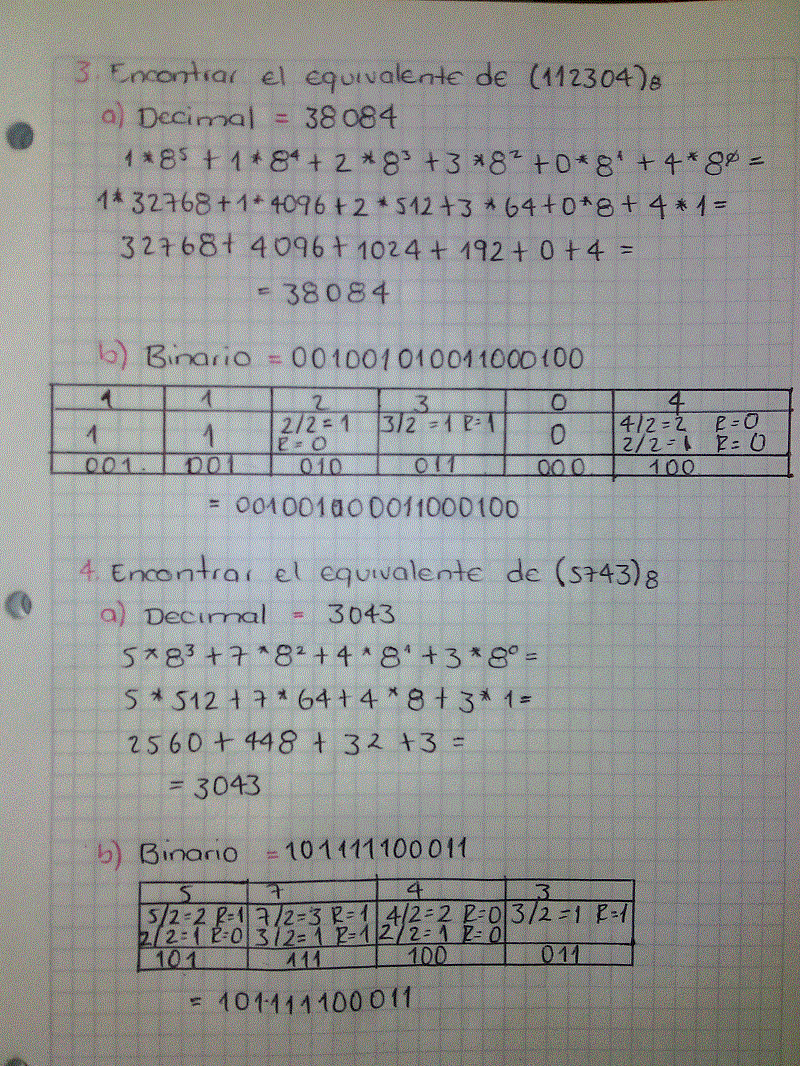 3. Encontrar el equivalente de (112304)₈
a) Decimal = 38084
1*8⁵ + 1*8⁴ + 2*8³ + 3*8² + 0*8¹ + 4*8⁰ =
1*32768 + 1*4096 + 2*512 + 3*64 + 0*8 + 4*1 =
32768 + 4096 + 1024 + 192 + 0 + 4 =
= 38084
b) Binario = 001001010011000100
1 1 2 3 0 4
1 1 2/2 = 1 R = 0 3/2 = 1 R = 1 0 4/2 = 2 R = 0 2/2 = 1 R = 0
001 001 010 011 000 100
= 001001000011000100
4. Encontrar el equivalente de (5743)₈
a) Decimal = 3043
5*8³ + 7*8² + 4*8¹ + 3*8⁰ =
5*512 + 7*64 + 4*8 + 3*1 =
2560 + 448 + 32 + 3 =
= 3043
b) Binario = 101111100011
5 7 4 3
5/2=2 R=1 7/2=3 R=1 4/2=2 R=0 3/2=1 R=1
2/2=1 R=0 3/2=1 R=1 2/2=1 R=0
101 111 100 011
= 101111100011